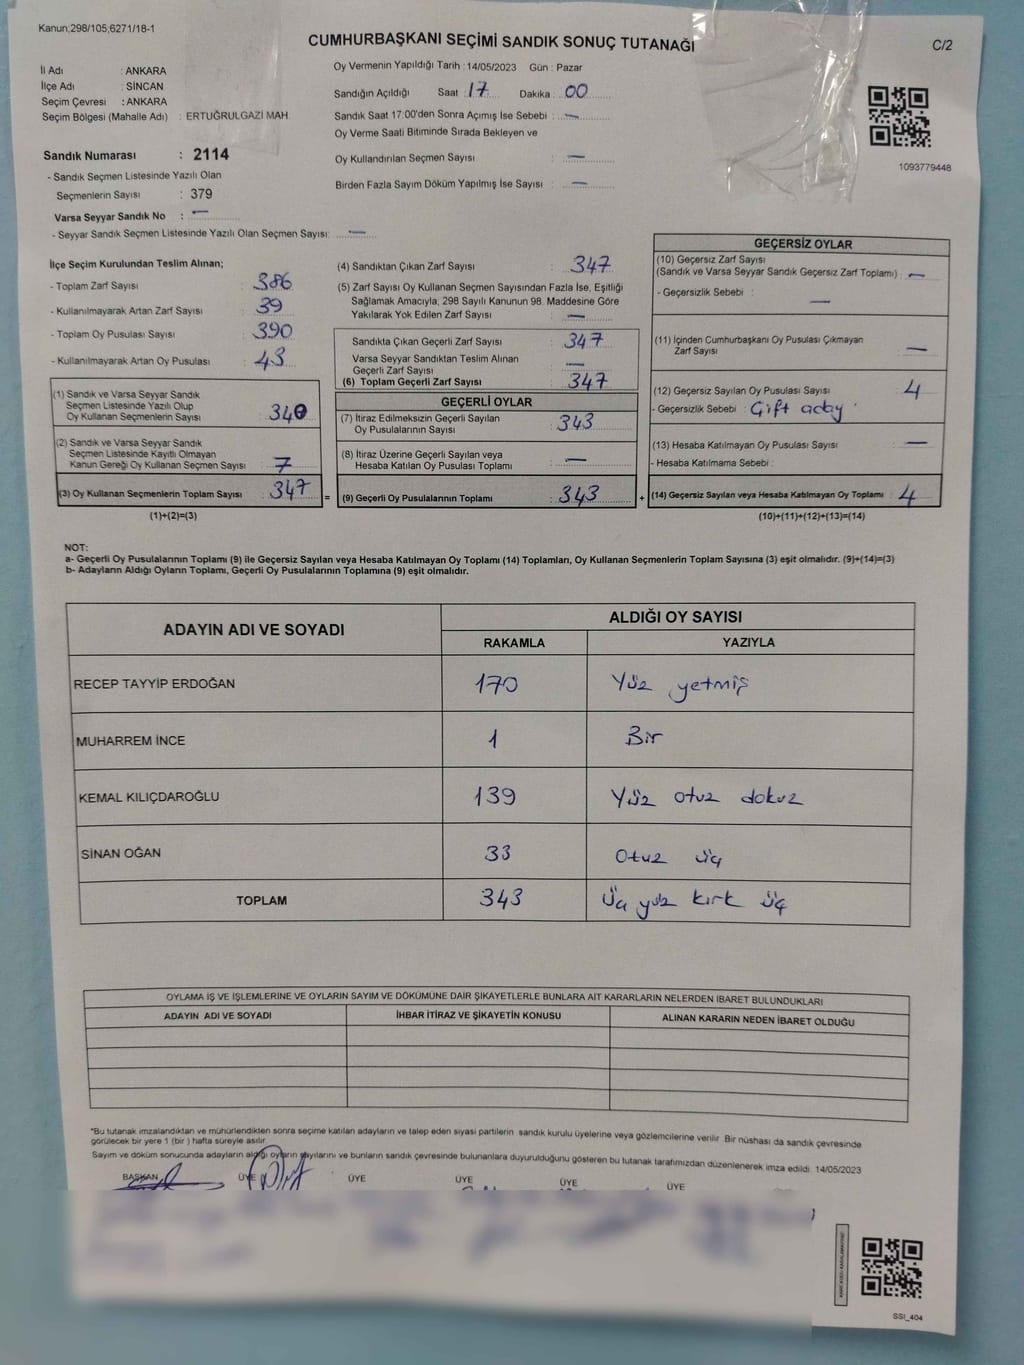 Kanun;298/105;6271/18-1
CUMHURBAŞKANI SEÇİMİ SANDIK SONUÇ TUTANAĞI
C/2
İl Adı : ANKARA
İlçe Adı : SİNCAN
Seçim Çevresi : ANKARA
Seçim Bölgesi (Mahalle Adı) : ERTUĞRULGAZİ MAH.
Sandık Numarası : 2114
- Sandık Seçmen Listesinde Yazılı Olan
Seçmenlerin Sayısı : 379
Varsa Seyyar Sandık No : —
- Seyyar Sandık Seçmen Listesinde Yazılı Olan Seçmen Sayısı: —
Oy Vermenin Yapıldığı Tarih : 14/05/2023 Gün : Pazar
Sandığın Açıldığı Saat : 17 Dakika : 00
Sandık Saat 17:00'den Sonra Açımış İse Sebebi : —
Oy Verme Saati Bitiminde Sırada Bekleyen ve
Oy Kullandırılan Seçmen Sayısı : —
Birden Fazla Sayım Döküm Yapılmış İse Sayısı : —
1093779448
İlçe Seçim Kurulundan Teslim Alınan;
- Toplam Zarf Sayısı : 386
- Kullanılmayarak Artan Zarf Sayısı : 39
- Toplam Oy Pusulası Sayısı : 390
- Kullanılmayarak Artan Oy Pusulası : 43
(1) Sandık ve Varsa Seyyar Sandık
Seçmen Listesinde Yazılı Olup
Oy Kullanan Seçmenlerin Sayısı : 340
(2) Sandık ve Varsa Seyyar Sandık
Seçmen Listesinde Kayıtlı Olmayan
Kanun Gereği Oy Kullanan Seçmen Sayısı : 7
(3) Oy Kullanan Seçmenlerin Toplam Sayısı : 347
(1)+(2)=(3)
=
(4) Sandıktan Çıkan Zarf Sayısı : 347
(5) Zarf Sayısı Oy Kullanan Seçmen Sayısından Fazla İse, Eşitliği
Sağlamak Amacıyla; 298 Sayılı Kanunun 98. Maddesine Göre
Yakılarak Yok Edilen Zarf Sayısı : —
Sandıkta Çıkan Geçerli Zarf Sayısı : 347
Varsa Seyyar Sandıktan Teslim Alınan
Geçerli Zarf Sayısı : —
(6) Toplam Geçerli Zarf Sayısı : 347
GEÇERLİ OYLAR
(7) İtiraz Edilmeksizin Geçerli Sayılan
Oy Pusulalarının Sayısı : 343
(8) İtiraz Üzerine Geçerli Sayılan veya
Hesaba Katılan Oy Pusulası Toplamı : —
(9) Geçerli Oy Pusulalarının Toplamı : 343
+
GEÇERSİZ OYLAR
(10) Geçersiz Zarf Sayısı
(Sandık ve Varsa Seyyar Sandık Geçersiz Zarf Toplamı) : —
- Geçersizlik Sebebi : —
(11) İçinden Cumhurbaşkanı Oy Pusulası Çıkmayan
Zarf Sayısı : —
(12) Geçersiz Sayılan Oy Pusulası Sayısı : 4
- Geçersizlik Sebebi : Çift aday
(13) Hesaba Katılmayan Oy Pusulası Sayısı : —
- Hesaba Katılmama Sebebi :
(14) Geçersiz Sayılan veya Hesaba Katılmayan Oy Toplamı : 4
(10)+(11)+(12)+(13)=(14)
NOT:
a- Geçerli Oy Pusulalarının Toplamı (9) ile Geçersiz Sayılan veya Hesaba Katılmayan Oy Toplamı (14) Toplamları, Oy Kullanan Seçmenlerin Toplam Sayısına (3) eşit olmalıdır. (9)+(14)=(3)
b- Adayların Aldığı Oyların Toplamı, Geçerli Oy Pusulalarının Toplamına (9) eşit olmalıdır.
ADAYIN ADI VE SOYADI ALDIĞI OY SAYISI
RAKAMLA YAZIYLA
RECEP TAYYİP ERDOĞAN 170 Yüz yetmiş
MUHARREM İNCE 1 Bir
KEMAL KILIÇDAROĞLU 139 Yüz otuz dokuz
SİNAN OĞAN 33 Otuz üç
TOPLAM 343 Üç yüz kırk üç
OYLAMA İŞ VE İŞLEMLERİNE VE OYLARIN SAYIM VE DÖKÜMÜNE DAİR ŞİKAYETLERLE BUNLARA AİT KARARLARIN NELERDEN İBARET BULUNDUKLARI
ADAYIN ADI VE SOYADI İHBAR İTİRAZ VE ŞİKAYETİN KONUSU ALINAN KARARIN NEDEN İBARET OLDUĞU
*Bu tutanak imzalandıktan ve mühürlendikten sonra seçime katılan adayların ve talep eden siyasi partilerin sandık kurulu üyelerine veya gözlemcilerine verilir. Bir nüshası da sandık çevresinde
görülecek bir yere 1 (bir ) hafta süreyle asılır.
Sayım ve döküm sonucunda adayların aldığı oyların sayılarını ve bunların sandık çevresinde bulunanlara duyurulduğunu gösteren bu tutanak tarafımızdan düzenlenerek imza edildi. 14/05/2023
BAŞKAN ÜYE ÜYE ÜYE ÜYE ÜYE
SSI_404